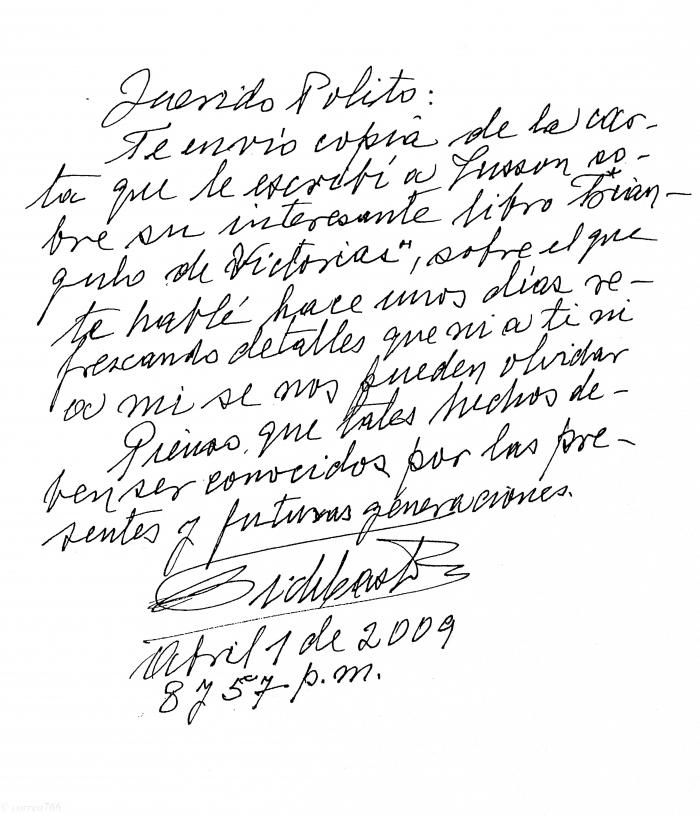 Querido Polito:
Te envío copia de la car-
ta que le escribí a Lusson so-
bre su interesante libro "Trian-
gulo de Victorias", sobre el que
te hablé hace unos días re-
frescando detalles que ni a ti ni
a mi se nos pueden olvidar
Pienso que tales hechos de-
ben ser conocidos por las pre-
sentes y futuras generaciones.
Abril 1 de 2009
8 y 57 p.m.